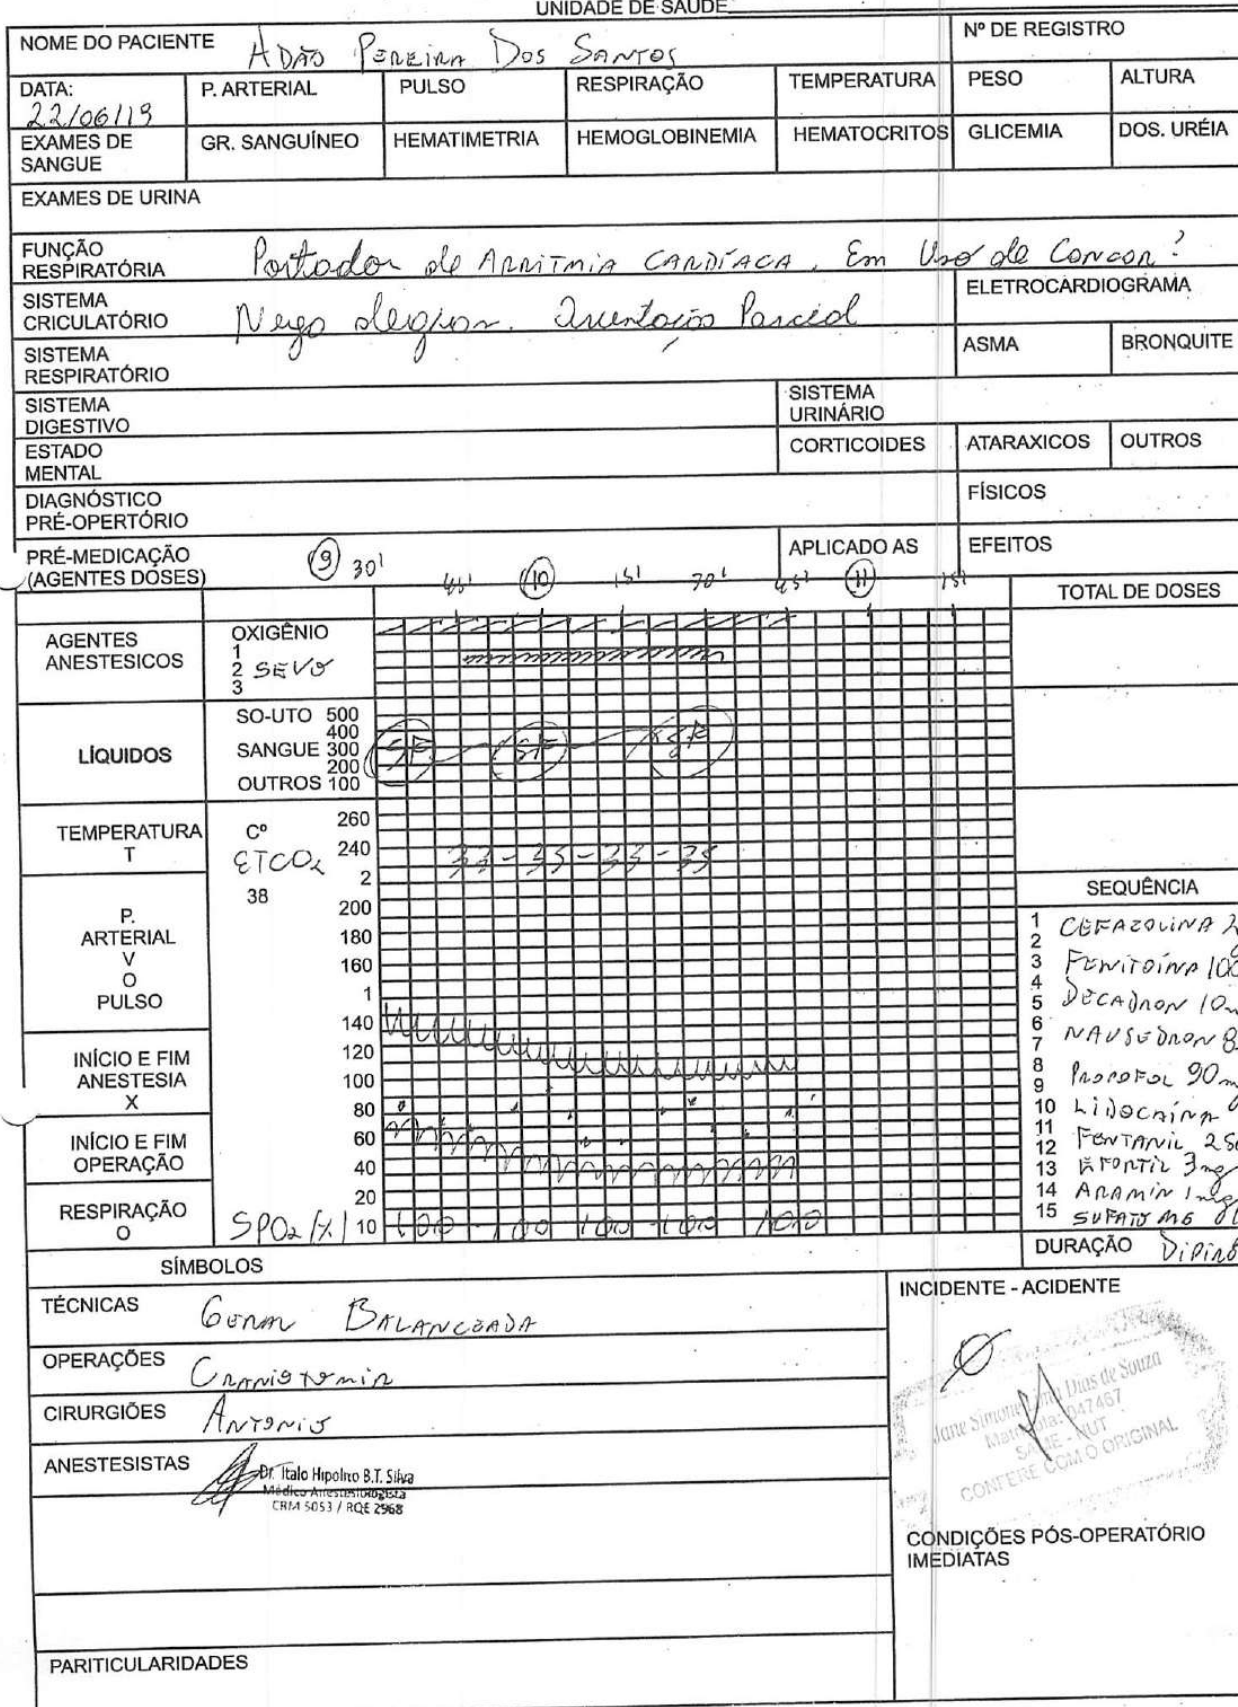 UNIDADE DE SAÚDE
NOME DO PACIENTE ADÃO PEREIRA DOS SANTOS Nº DE REGISTRO
DATA: 22/06/19 P. ARTERIAL PULSO RESPIRAÇÃO TEMPERATURA PESO ALTURA
EXAMES DE SANGUE GR. SANGUÍNEO HEMATIMETRIA HEMOGLOBINEMIA HEMATOCRITOS GLICEMIA DOS. URÉIA
EXAMES DE URINA
FUNÇÃO RESPIRATÓRIA Portador de ARRITMIA CARDÍACA. Em Uso de Concor?
SISTEMA CRICULATÓRIO Nega alergias. Orientação Parcial ELETROCARDIOGRAMA
SISTEMA RESPIRATÓRIO ASMA BRONQUITE
SISTEMA DIGESTIVO SISTEMA URINÁRIO
ESTADO MENTAL CORTICOIDES ATARAXICOS OUTROS
DIAGNÓSTICO PRÉ-OPERTÓRIO FÍSICOS
PRÉ-MEDICAÇÃO (AGENTES DOSES) APLICADO AS EFEITOS
9 30' 45' 10 15' 45' 11 15'
TOTAL DE DOSES
AGENTES ANESTESICOS OXIGÊNIO
1
2 SEVO
3
LÍQUIDOS
SO-UTO 500
400
SANGUE 300
200
OUTROS 100
SF SF SF
TEMPERATURA T Cº 260
ETCO2 240
2
38
200
180
160
1
140
120
100
80
60
40
20
10
P. ARTERIAL V O PULSO
INÍCIO E FIM ANESTESIA X
INÍCIO E FIM OPERAÇÃO
RESPIRAÇÃO O
SPO2 (%) 100 100 100 100 100
SEQUÊNCIA
1 CEFAZOLINA 2
2
3 FENITOÍNA 100
4
5 DECADRON 10m
6
7 NAUSEDRON 8
8
9 PROPOFOL 90m
10 LIDOCAÍNA
11
12 FENTANIL 250
13 EFORTIL 3mg
14 ARAMIN 1mg
15 SUFATO MG
DURAÇÃO
SÍMBOLOS
TÉCNICAS GERAL BALANCEADA
OPERAÇÕES CRANIOTOMIA
CIRURGIÕES ANTONIO
ANESTESISTAS
Dr. Italo Hipolito B.T. Silva
Médico Anestesiologista
CRM 5053 / RQE 2968
INCIDENTE - ACIDENTE
Jane Simone Lima Dias de Souza
Matrícula: 047467
SAME - HUT
CONFERE COM O ORIGINAL
CONDIÇÕES PÓS-OPERATÓRIO IMEDIATAS
PARITICULARIDADES